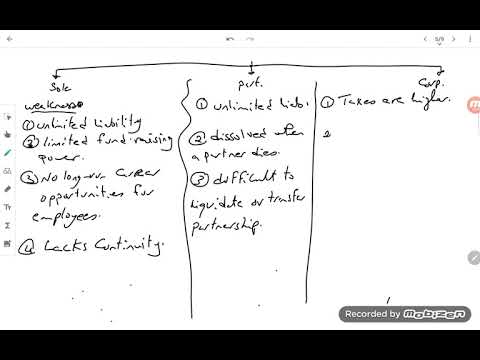 5/9
Sole
weakness
① unlimited liability
② limited fund-raising
power.
③ No long-run career
opportunities for
employees.
④ Lacks Continuity.
part.
① unlimited liabi.
② dissolved when
a partner dies.
③ difficult to
liquidate or transfer
partnership.
Corp.
① Taxes are higher.
2
Recorded by mobizen